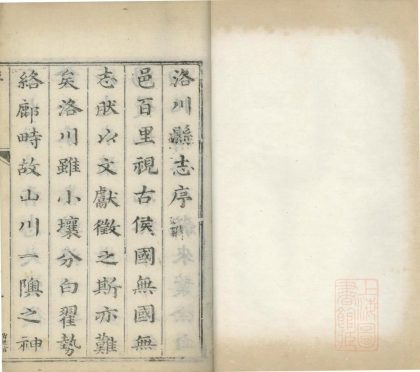 洛川縣志序
邑百里視古侯國無國
志肰以文獻徵之斯亦難
矣洛川雖小壤分白翟勢
絡鄜畤故山川一隩之神
上海圖
書館藏